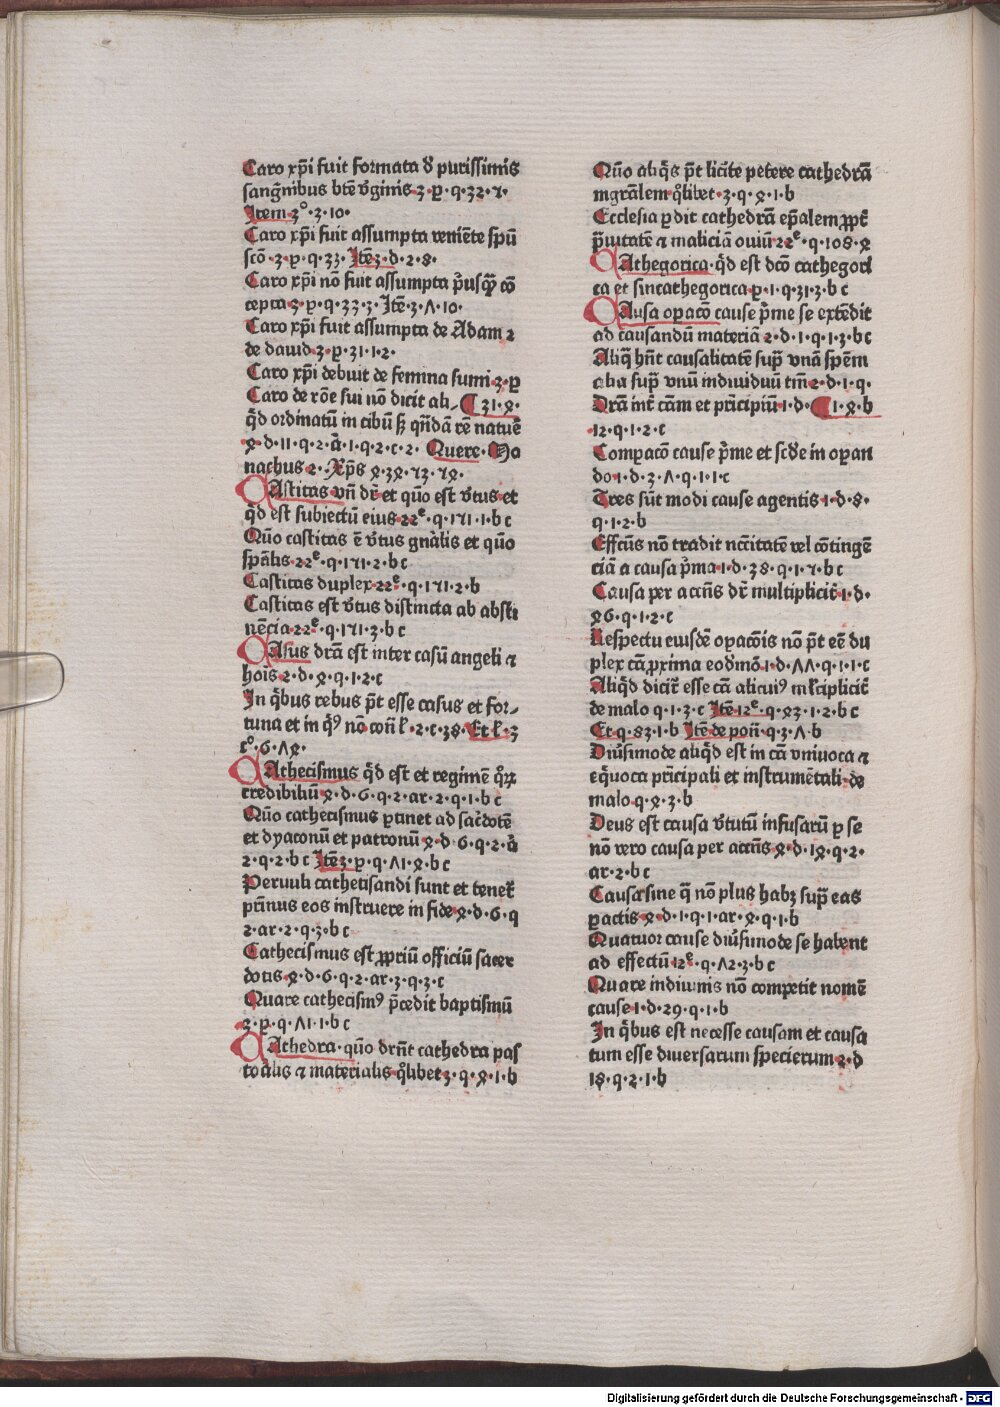 Caro xp̄i fuit formata ꝺ̄ purissimis
sangͥnibus btē v̄ginis·3·ꝑ·q·32·ꝛ·
Item·3°·3·10·
Caro xp̄i fuit assumpta veniēte spū
scō·3·ꝑ·q·33·Itē·3·d·2·8·
Caro xp̄i nō fuit assumpta p̄usꝙ̄ cō
cepta·3·ꝑ·q·33·3·Itē·3·Λ·10·
Caro xp̄i fuit assumpta de Adam ꝛ
de dauid·3·ꝑ·31·1·2·
Caro xp̄i debuit de femina sumi·3·ꝑ
Caro de rōe sui nō dicit ali⸗ ¶31·ꝝ·
q̄d ordinatū in cibū sꝫ qn̄dā rē natuē
ꝝ·d·11·q·2·ā·1·q·2·c·2· Quere·Mo
nachus 2·Xp̄s ꝝ·3ꝝ·ꝛ3·ꝛꝝ·
CAstitas vn̄ dr̄ et quō est v̄tus et
q̄d est subiectū eius·22ͤ·q·1ꝛ1·1·b c
Quō castitas ē v̄tus gn̄alis et quō
spālis·22ͤ·q·1ꝛ1·2·b c
Castitas duplex·22ͤ·q·1ꝛ1·2·b
Castitas est v̄tus distincta ab absti
nēcia·22ͤ·q·1ꝛ1·3·b c
CAsus dr̄a est inter casū angeli ꝛ
hoīs·2·d·ꝝ·q·1·2·c
In q̄bus rebus pn̄t esse casus et for⸗
tuna et in q̄ꝰ nō con̄ ł·2·c·38·Et ł·3
t°·6·Λꝝ·
CAthecismus q̄d est et regimē q̄ꝝ
credibiliū ꝝ·d·6·q·2·ar·2·q·1·b c
Quō cathecismus ꝑtinet ad sac̄dotē
et dyaconū et patronū ꝝ·d·6·q·2·ā
2·q·2·b c Itē·3·ꝑ·q·Λ1·ꝝ·b c
Peruuli cathetisandi sunt et tenet̄
prīnus eos instruere in fide ꝝ·d·6·q
2·ar·2·q·3·b c
Cathecismus est ꝓpriū officiū sacer
dotis ꝝ·d·6·q·2·ar·3·q·3·c
Quare cathecismꝰ p̄cedit baptismū
3·ꝑ·q·Λ1·1·b c
CAthedra·quō drn̄t cathedra pas
toālis ꝛ materialis q̄libet·3·q·ꝝ·1·b
Quō aliq̄s pōt licite petere cathedrā
mgrālem q̄libet·3·q·ꝝ·1·b
Ecclesia ꝑdit cathedrā ep̄alem ꝓpt̄
p̄uitatē ꝛ maliciā ouiū·22ͤ·q·108·ꝝ
CAthegorica·q̄d est dcō cathegori
ca et sincathegorica·ꝑ·1·q·31·3·b c
CAusa oꝑacō cause p̄me se extēdit
ad causandū materiā 2·d·1·q·1·3·b c
Aliq̄ hn̄t causalitatē suꝑ vnā spēm
alia suꝑ vnū indiuiduū tm̄ 2·d·1·q·
Drā int̄ cām et prīcipiū·1·d· ¶1·ꝝ·b
12·q·1·2·c
Comꝑacō cause p̄me et scd̄e in oꝑan
do·1·d·3·Λ·q·1·1·c
Tres sūt modi cause agentis·1·d·8·
q·1·2·b
Effcūs nō tradit nc̄itatē vel cōtingē
ciā a causa p̄ma·1·d·38·q·1·ꝛ·b c
Causa per accn̄s dr̄ multiplicit̄·1·d·
ꝝ6·q·1·2·c
Respectu eiusdē oꝑacōis nō pōt eē du
plex cā ꝓxima eodmō·1·d·ΛΛ·q·1·1·c
Aliq̄d dicit̄ esse cā alicuiꝰ mlt̄iplicit̄
de malo q·1·3·c Itē·12ͤ·q·ꝝ3·1·2·b c
Et q·83·1·b Itē de pon̄·q·3·Λ·b
Diūsimode aliq̄d est in cā vniuoca ꝛ
eq̄uoca prīcipali et instrumētali·de
malo·q·ꝝ·3·b
Deus est causa v̄tutū infusarū ꝑ se
nō vero causa per accn̄s ꝝ·d·1ꝝ·q·2·
ar·2·b c
Causa sine q̄ nō plus habꝫ suꝑ eas
ꝑactis ꝝ·d·1·q·1·ar·ꝝ·q·1·b
Quatuor cause diūsimode se habent
ad effectū·12ͤ·q·Λ2·3·b c
Quare in diuinis nō competit nomē
cause·1·d·29·q·1·b
In q̄bus est necesse causam et causa
tum esse diuersarum specierum·2·d
18·q·2·1·b
Digitalisierung gefördert durch die Deutsche Forschungsgemeinschaft - DFG